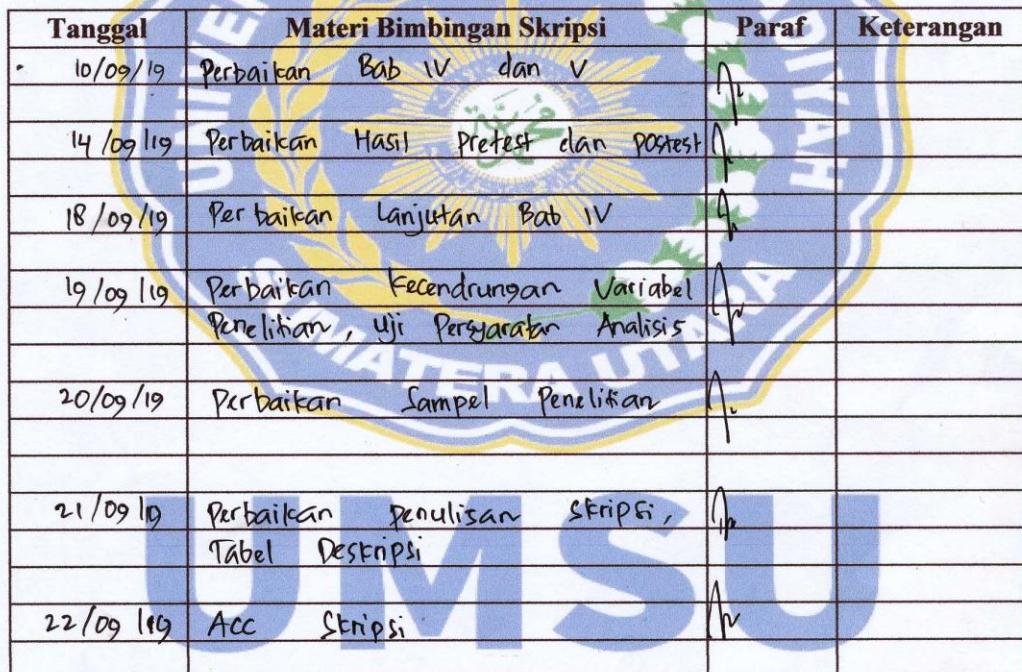 Tanggal Materi Bimbingan Skripsi Paraf Keterangan
10/09/19 Perbaikan Bab IV dan V
14/09/19 Perbaikan Hasil pretest dan postest
18/09/19 Perbaikan Lanjutan Bab IV
19/09/19 Perbaikan Kecendrungan Variabel
Penelitian, Uji Persyaratan Analisis
20/09/19 Perbaikan Sampel Penelitian
21/09/19 Perbaikan penulisan skripsi,
Tabel Deskripsi
22/09/19 Acc Skripsi
MATERA UTARA
UMSU